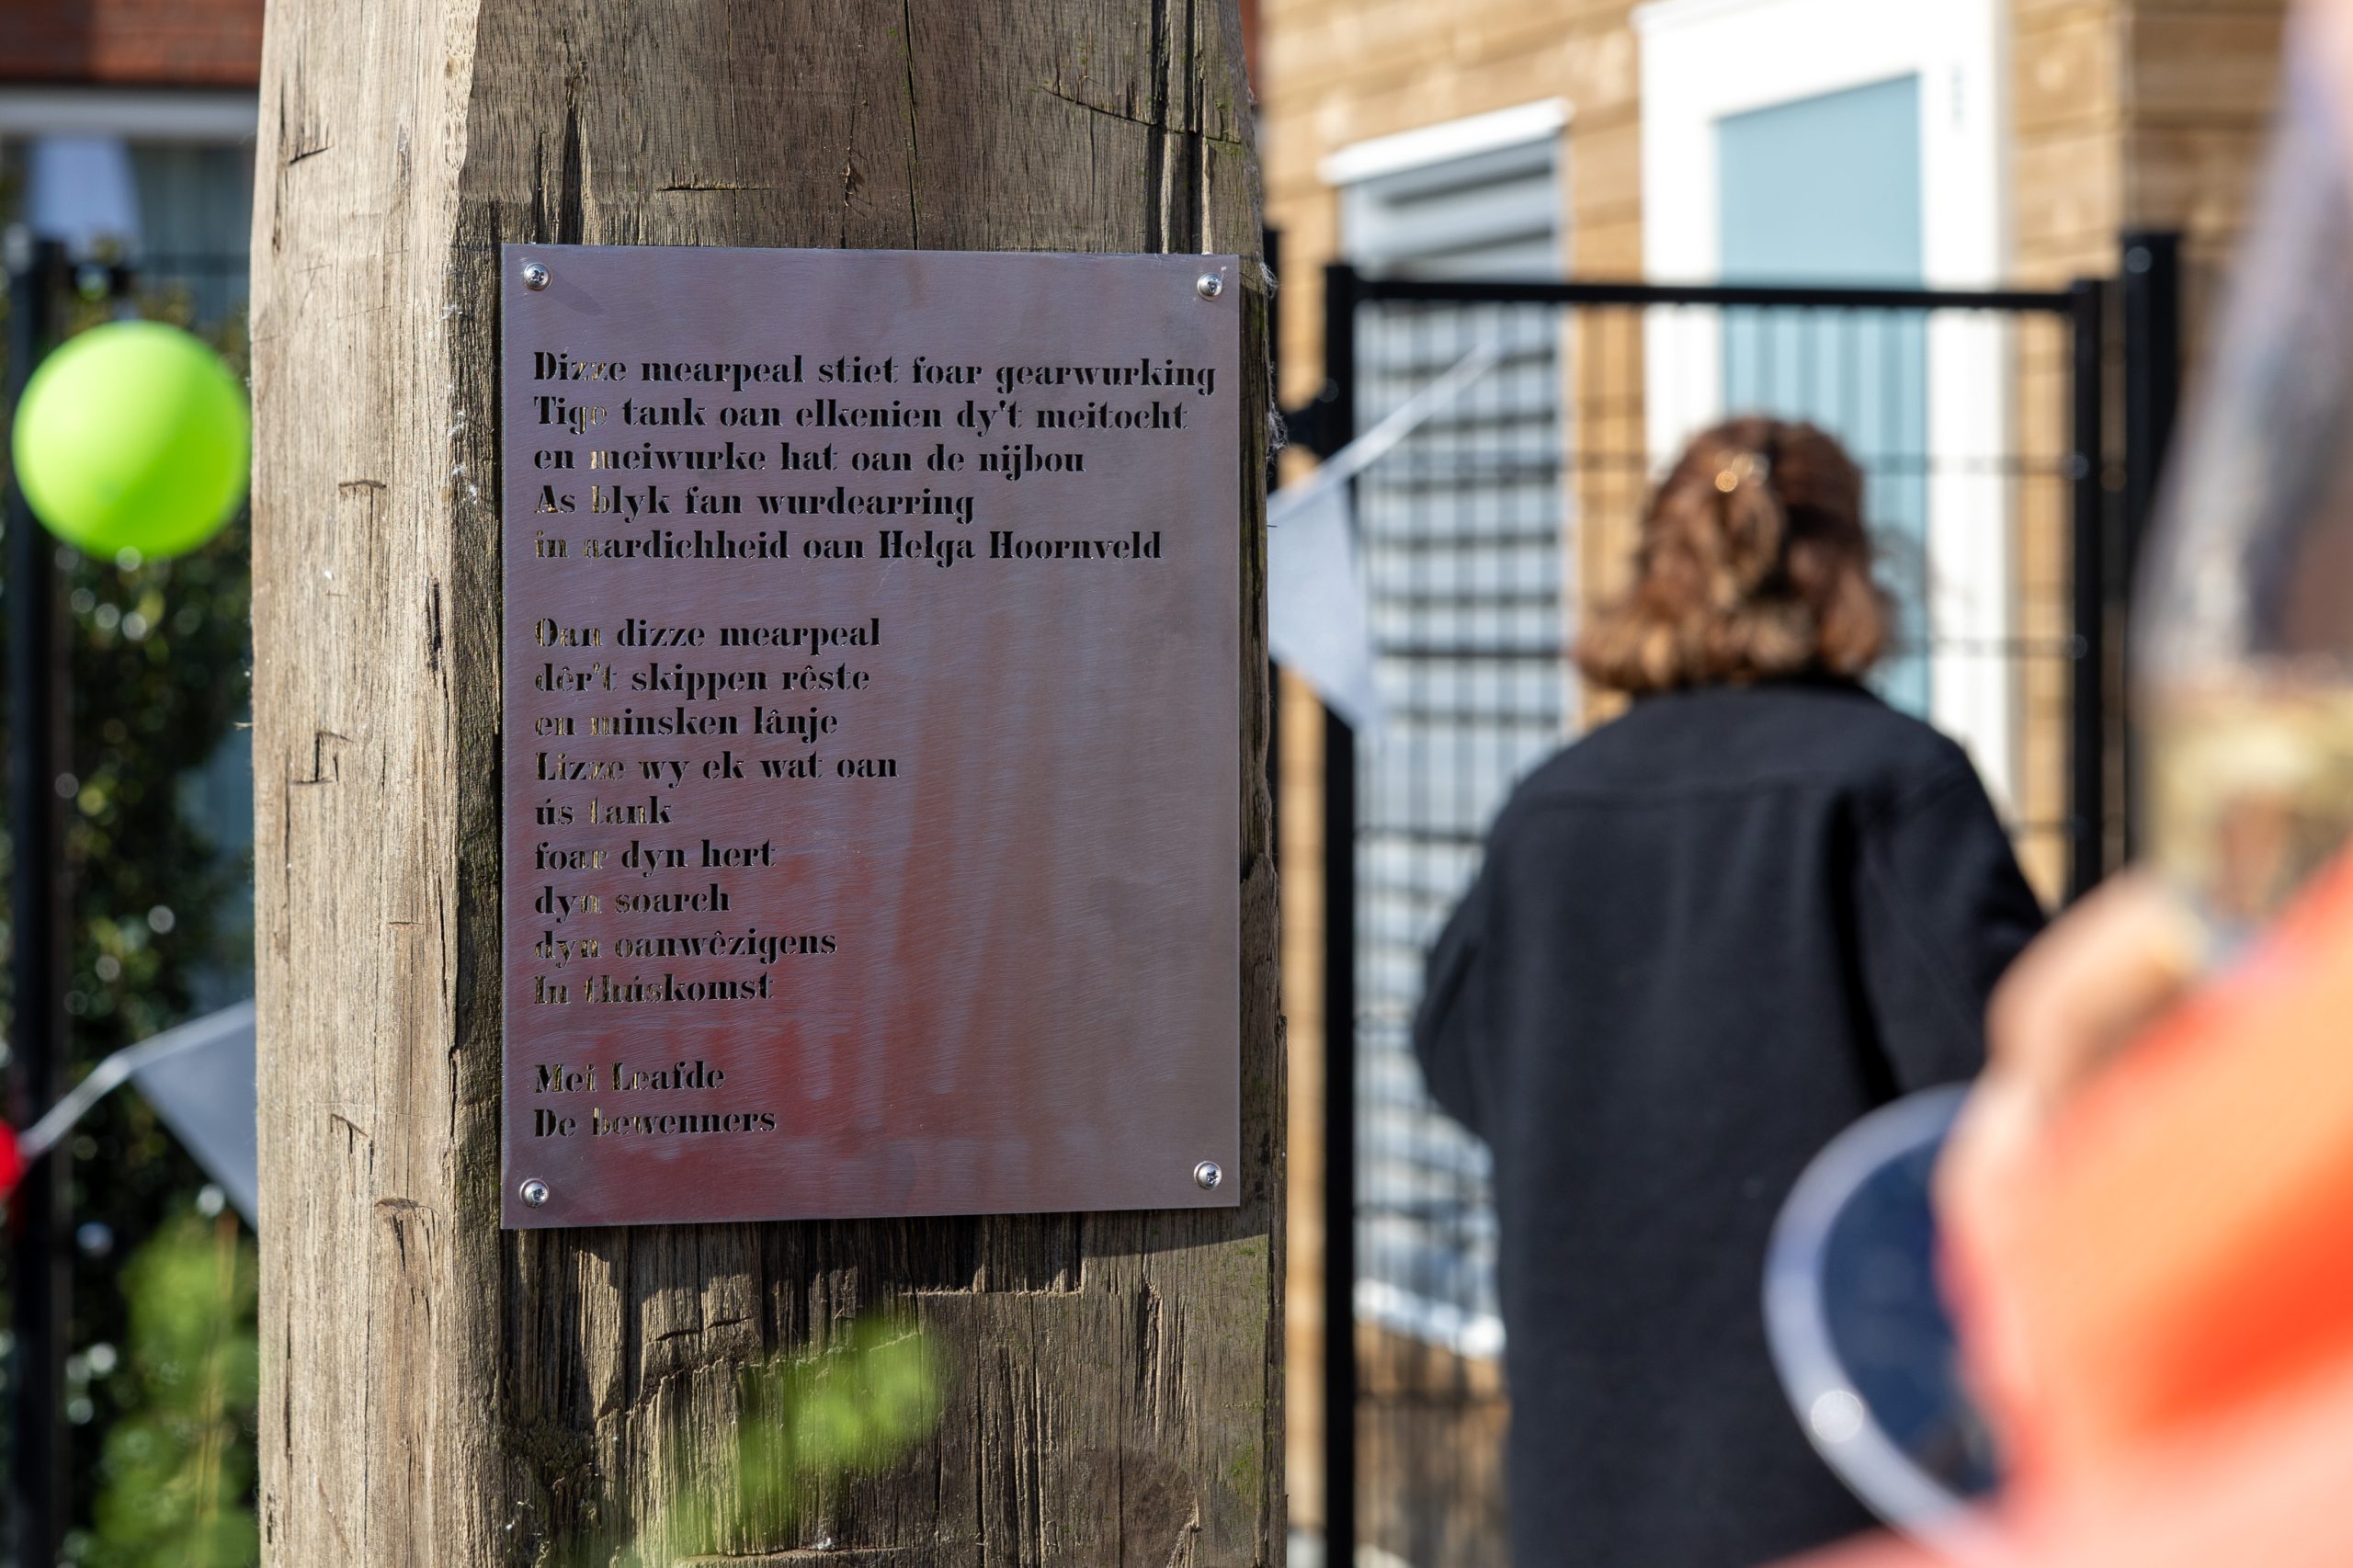 Dizze mearpeal stiet foar gearwurking
Tige tank oan elkenien dy't meitocht
en meiwurke hat oan de nijbou
As blyk fan wurdearring
in aardichheid oan Helga Hoornveld
Oan dizze mearpeal
dêr't skippen rêste
en minsken lânje
Lizze wy ek wat oan
ús tank
foar dyn hert
dyn soarch
dyn oanwêzigens
In thúskomst
Mei Leafde
De bewenners